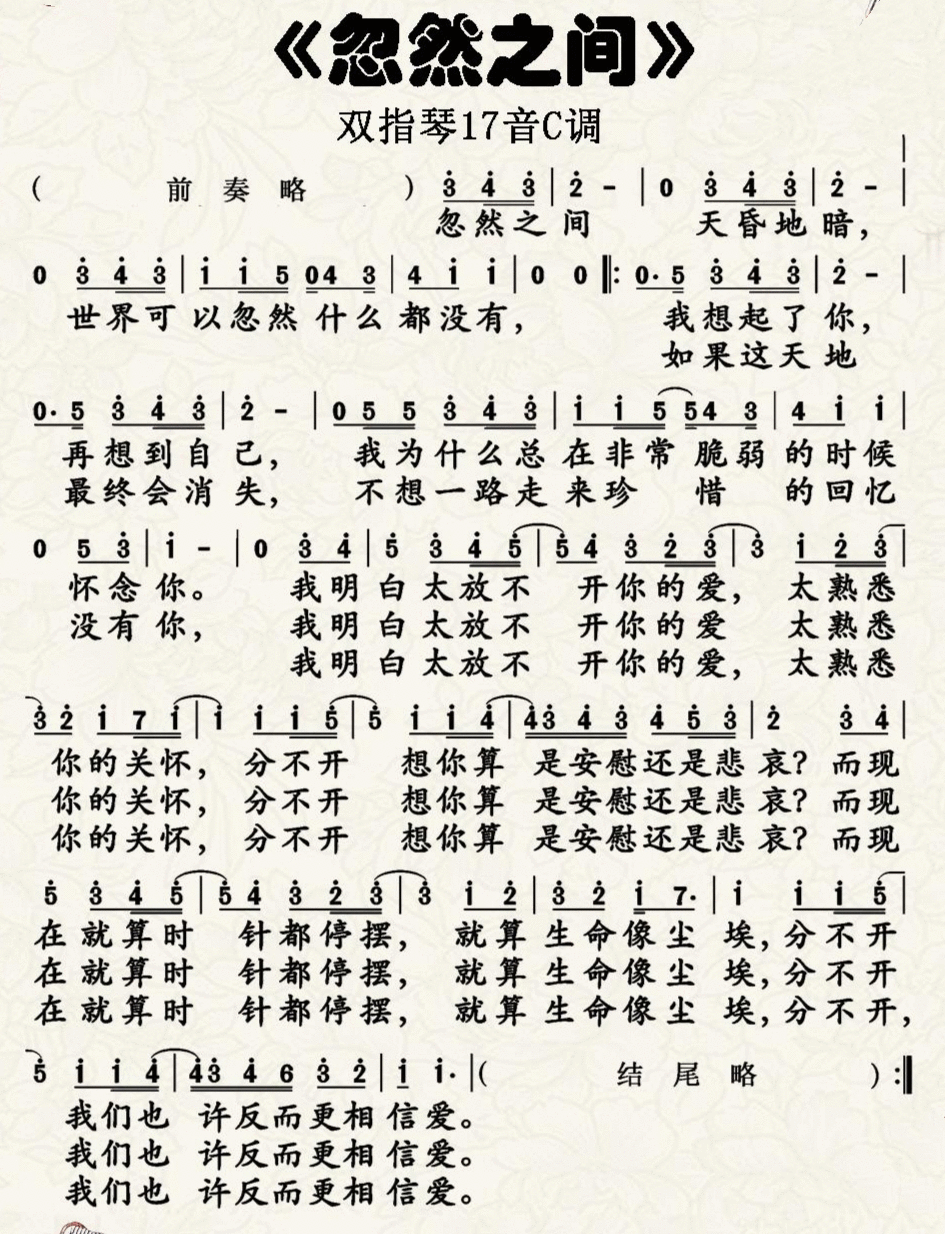 《忽然之间》
双指琴17音C调
( 前 奏 略 ) 3̇ 4̇ 3̇ | 2̇ - | 0 3̇ 4̇ 3̇ | 2̇ - |
忽然之 间 天昏地 暗,
0 3̇ 4̇ 3̇ | 1̇ 1̇ 5 04 3 | 4 1̇ 1̇ | 0 0 ‖: 0· 5 3̇ 4̇ 3̇ | 2̇ - |
世界可 以忽然 什么 都没有, 我想起了 你,
如果这天 地
0· 5 3̇ 4̇ 3̇ | 2̇ - | 0 5 5 3̇ 4̇ 3̇ | 1̇ 1̇ 5 54 3 | 4 1̇ 1̇ |
再想到自 己, 我为什么总 在非常 脆弱 的时候
最终会消 失, 不想一路走 来珍 惜 的回忆
0 5 3̇ | 1̇ - | 0 3̇ 4̇ | 5̇ 3̇ 4̇ 5̇ | 5̇ 4̇ 3̇ 2̇ 3̇ | 3̇ 1̇ 2̇ 3̇ |
怀念 你。 我明 白太放不 开你的爱, 太熟悉
没有 你, 我明 白太放不 开你的爱 太熟悉
我明 白太放不 开你的爱, 太熟悉
3̇ 2̇ 1̇ 7 1̇ | 1̇ 1̇ 1̇ 5̇ | 5̇ 1̇ 1̇ 4̇ | 4̇3̇ 4̇ 3̇ 4̇ 5̇ 3̇ | 2̇ 3̇ 4̇ |
你的关怀, 分不开 想你算 是安慰还是悲 哀? 而现
你的关怀, 分不开 想你算 是安慰还是悲 哀? 而现
你的关怀, 分不开 想你算 是安慰还是悲 哀? 而现
5̇ 3̇ 4̇ 5̇ | 5̇ 4̇ 3̇ 2̇ 3̇ | 3̇ 1̇ 2̇ | 3̇ 2̇ 1̇ 7· | 1̇ 1̇ 1̇ 5̇ |
在就算时 针都停摆, 就算 生命像尘 埃,分不开
在就算时 针都停摆, 就算 生命像尘 埃,分不开
在就算时 针都停摆, 就算 生命像尘 埃,分不开,
5̇ 1̇ 1̇ 4̇ | 4̇3̇ 4̇ 6̇ 3̇ 2̇ | 1̇ 1̇· | ( 结 尾 略 ) :‖
我们也 许反而更相 信爱。
我们也 许反而更相 信爱。
我们也 许反而更相 信爱。